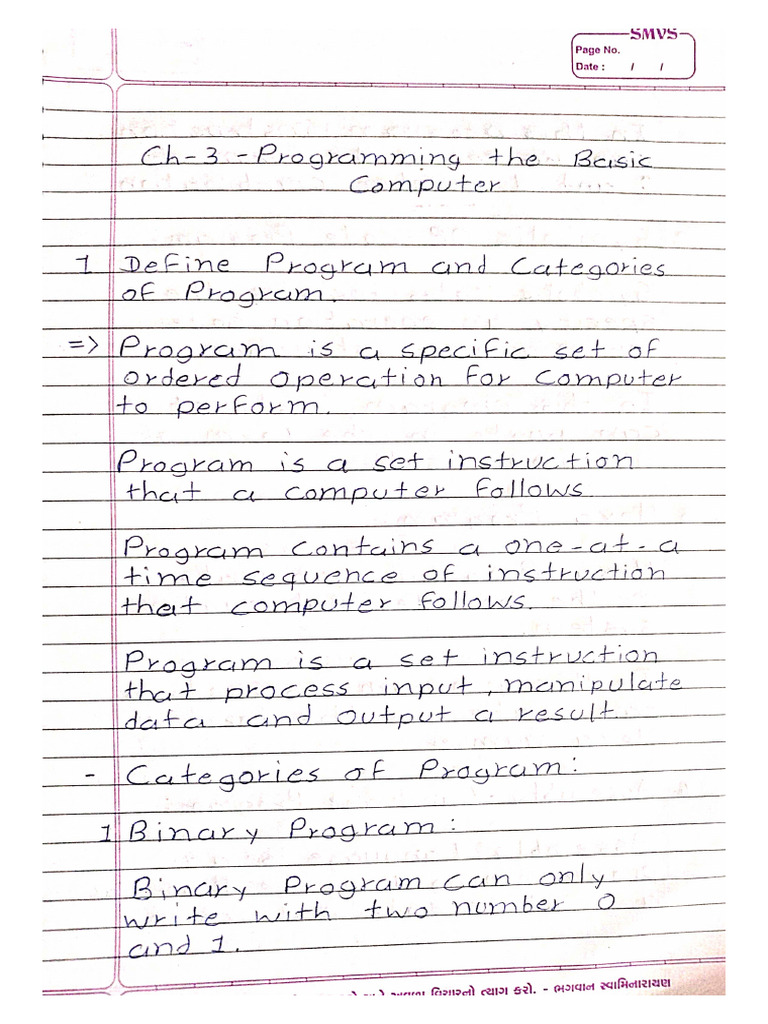 SMVS
Page No.
Date : / /
Ch-3 - Programming the Basic
Computer
1 Define Program and Categories
of Program.
=> Program is a specific set of
ordered operation for computer
to perform.
Program is a set instruction
that a computer follows
Program contains a one-at-a
time sequence of instruction
that computer follows.
Program is a set instruction
that process input, manipulate
data and output a result
- Categories of Program:
1 Binary Program:
Binary Program can only
write with two number 0
and 1.
વિચારનો ત્યાગ કરો. - ભગવાન સ્વામિનારાયણ